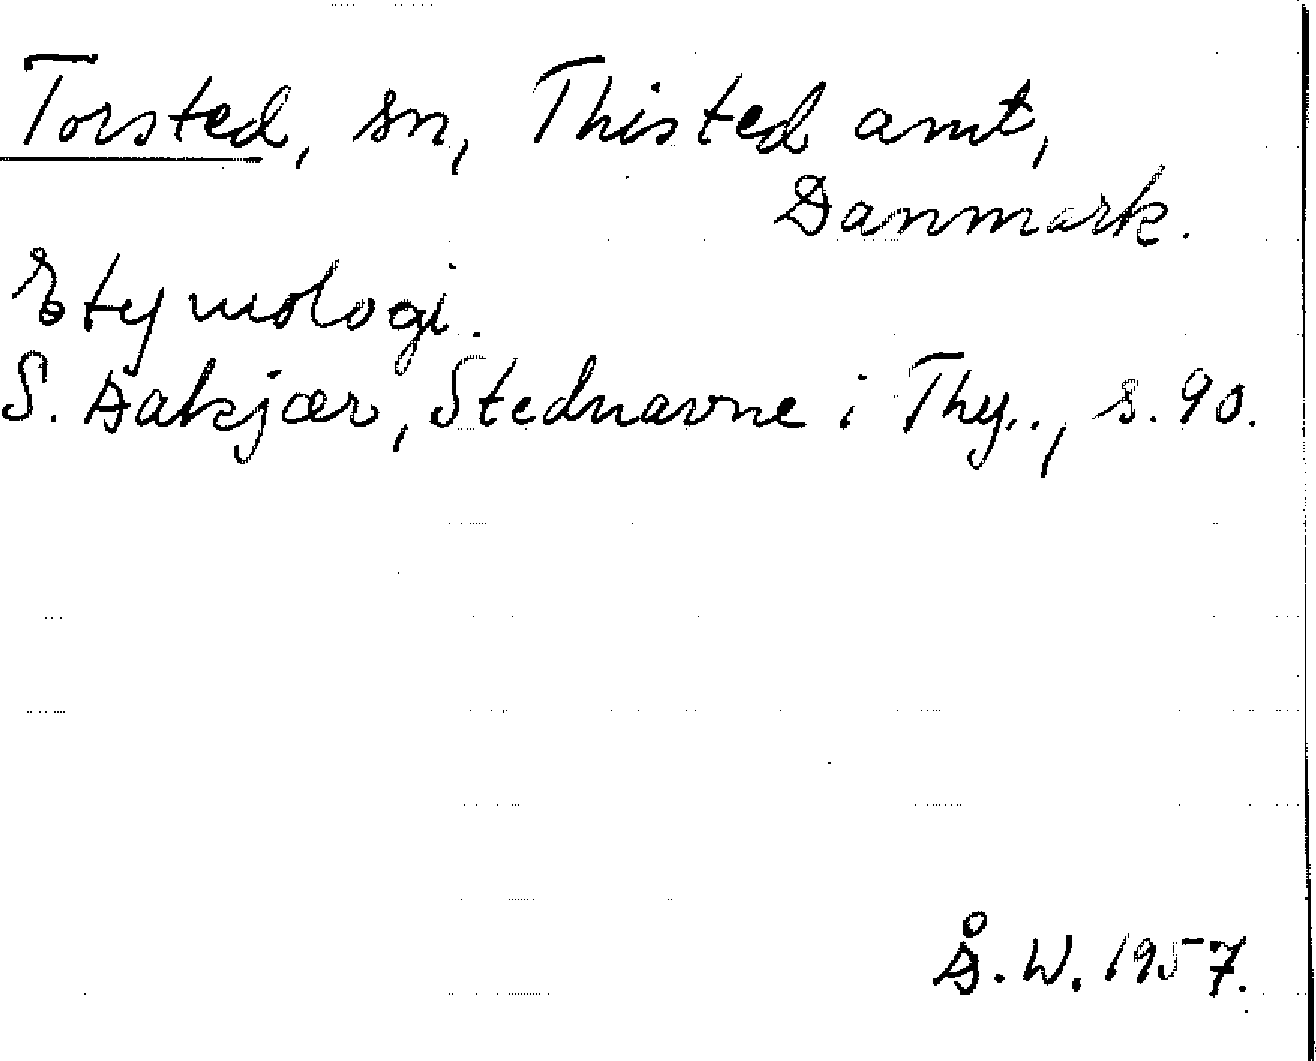 Torsted, sn, Thisted amt,
Danmark.
Etymologi.
S. Aakjær, Stednavne i Thy.., s. 90.
Å. W. 1957.